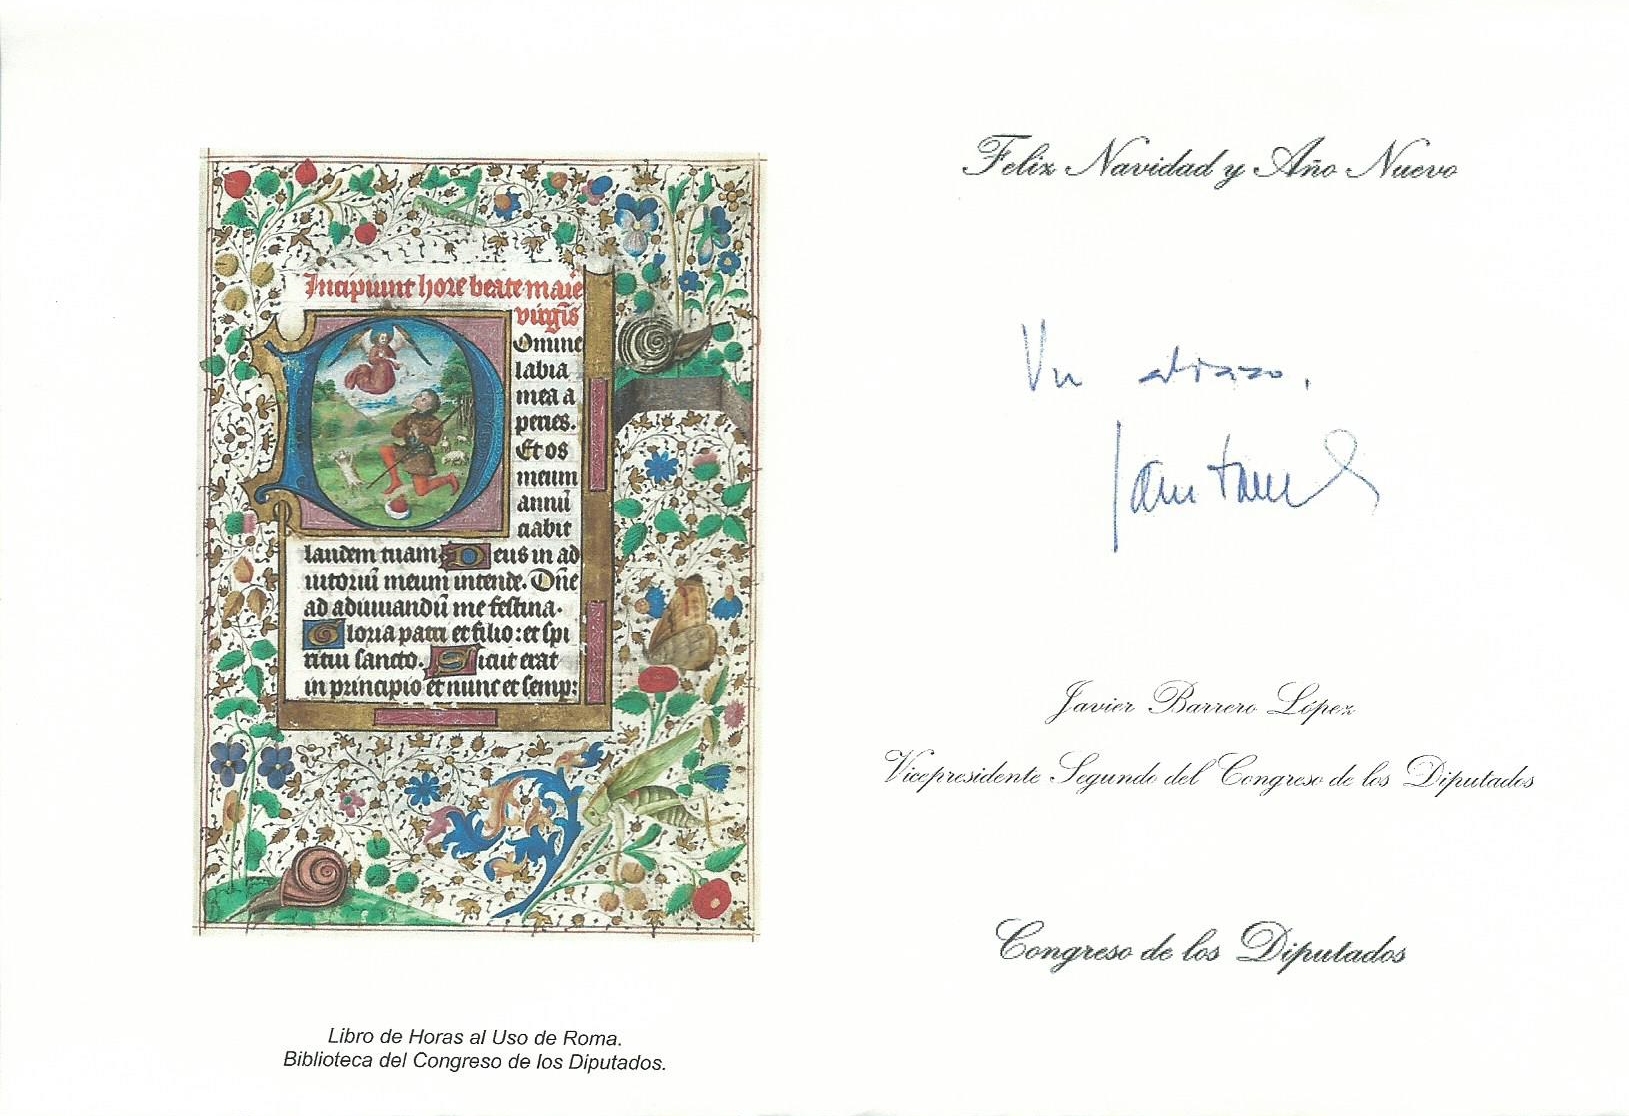 Incipiunt hore beate maie
virgis
Domine
labia
mea a
peries.
Et os
meum
annū
ciabit
laudem tuam Deus in ad
iutoriū meum intende. Dñe
ad adiuuandū me festina.
Gloria patri et filio: et spi
ritui sancto. Sicut erat
in principio et nunc et semp:
Libro de Horas al Uso de Roma.
Biblioteca del Congreso de los Diputados.
Feliz Navidad y Año Nuevo
Un abrazo.
Javier Barrero López
Vicepresidente Segundo del Congreso de los Diputados
Congreso de los Diputados